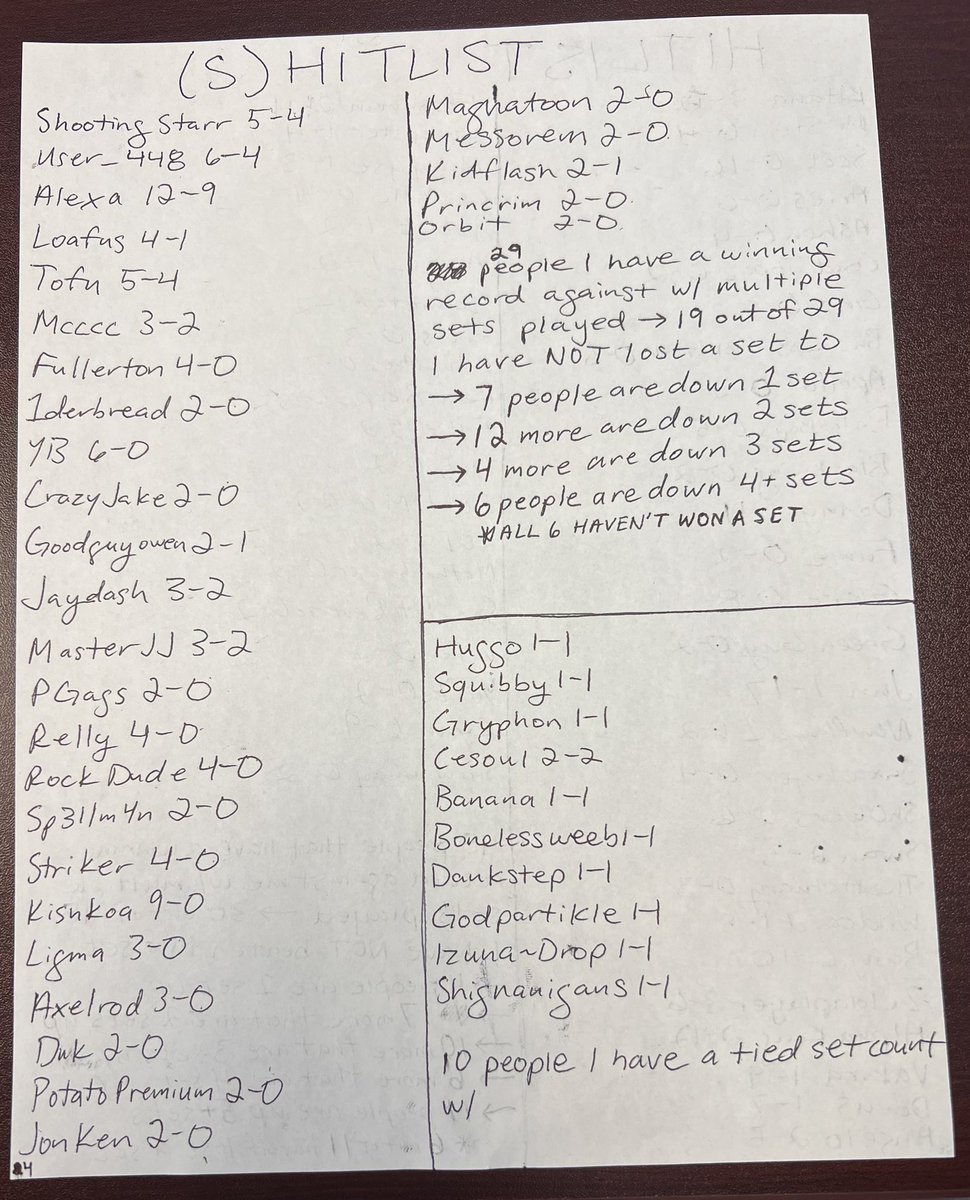 (S) HITLIST
Shooting Starr 5-4
User_448 6-4
Alexa 12-9
Loafus 4-1
Tofu 5-4
Mcccc 3-2
Fullerton 4-0
1derbread 2-0
YB 6-0
CrazyJake 2-0
Goodguyowen 2-1
Jaydash 3-2
MasterJJ 3-2
PGags 2-0
Relly 4-0
RockDude 4-0
Sp3llm4n 2-0
Striker 4-0
Kishkoa 9-0
Ligma 3-0
Axelrod 3-0
Duk 2-0
PotatoPremium 2-0
JonKen 2-0
24
Maghatoon 2-0
Messorem 2-0
Kidflash 2-1
Princrim 2-0
Orbit 2-0
29
people I have a winning
record against w/ multiple
sets played → 19 out of 29
I have NOT lost a set to
→ 7 people are down 1 set
→ 12 more are down 2 sets
→ 4 more are down 3 sets
→ 6 people are down 4+ sets
*ALL 6 HAVEN'T WON A SET
Huggo 1-1
Squibby 1-1
Gryphon 1-1
Cesoul 2-2
Banana 1-1
Bonelessweeb 1-1
Dankstep 1-1
Godpartikle 1-1
Izuna~Drop 1-1
Shignanigans 1-1
10 people I have a tied setcount
w/